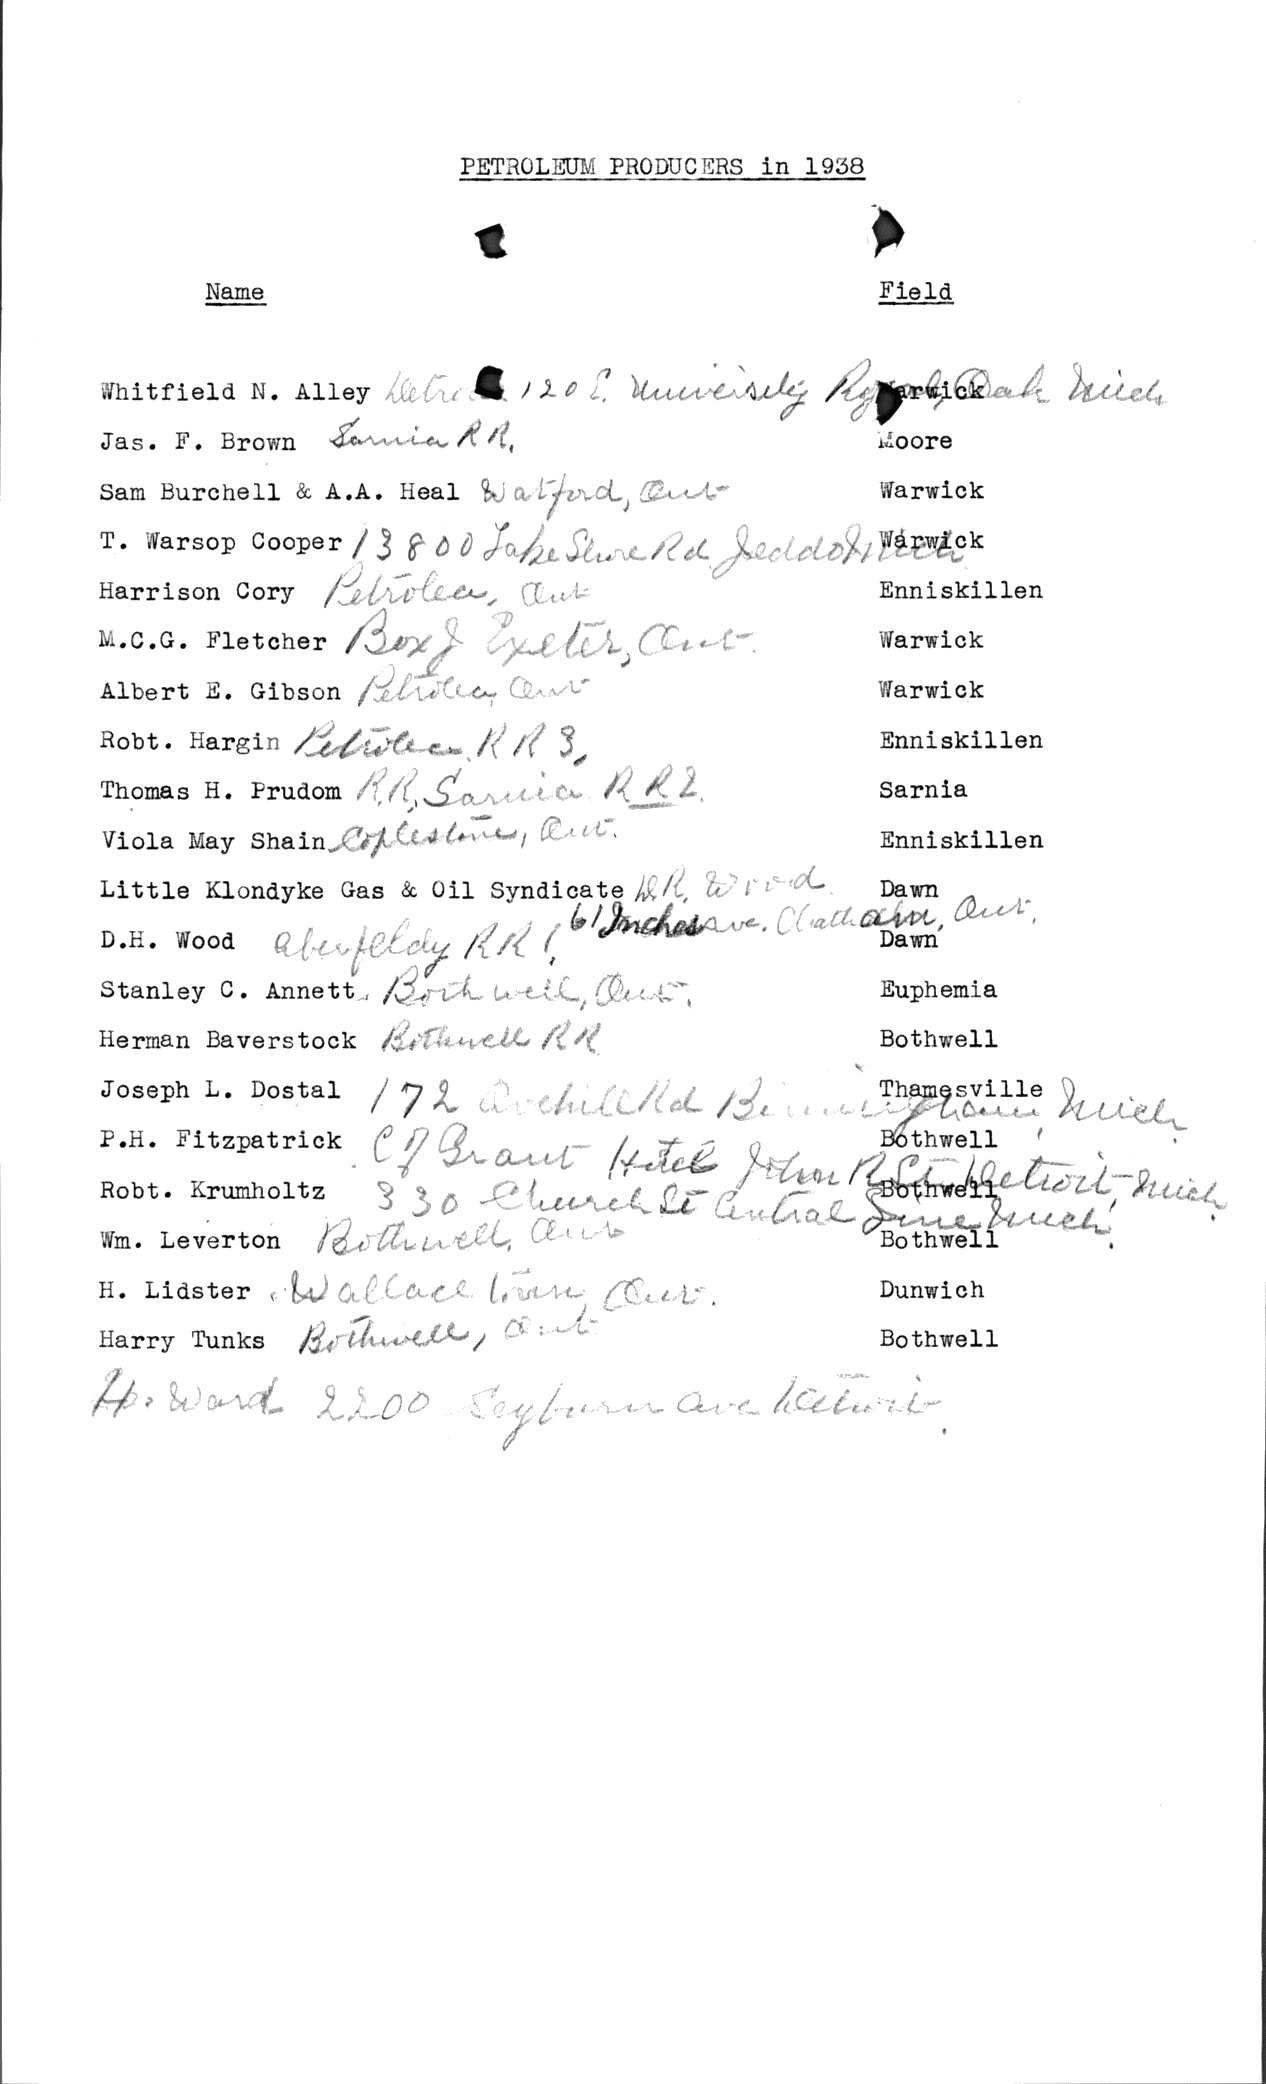 PETROLEUM PRODUCERS in 1938
Name Field
Whitfield N. Alley Detroit 120 E. University Royal Oak Mich Warwick
Jas. F. Brown Sarnia R R, Moore
Sam Burchell & A.A. Heal Watford, Ont Warwick
T. Warsop Cooper 13800 Lake Shore Rd Jeddo Mich Warwick
Harrison Cory Petrolea, Ont Enniskillen
M.C.G. Fletcher Box J Exeter, Ont. Warwick
Albert E. Gibson Petrolea, Ont Warwick
Robt. Hargin Petrolea R R 3, Enniskillen
Thomas H. Prudom R.R, Sarnia R R 2. Sarnia
Viola May Shain Coplestone, Ont. Enniskillen
Little Klondyke Gas & Oil Syndicate D.R. Wood Dawn
61 Inches ave. Chatham, Ont.
D.H. Wood Aberfeldy R R 1, Dawn
Stanley C. Annett Bothwell, Ont. Euphemia
Herman Baverstock Bothwell R R Bothwell
Joseph L. Dostal 172 Rd Birmingham, Mich Thamesville
P.H. Fitzpatrick Grant Hotel John R St. Detroit, Mich. Bothwell
Robt. Krumholtz 330 Church St Central Line Mich. Bothwell
Wm. Leverton Bothwell, Ont Bothwell
H. Lidster Wallacetown, Ont. Dunwich
Harry Tunks Bothwell, Ont Bothwell
H. Ward 2200 Seyburn ave Detroit.